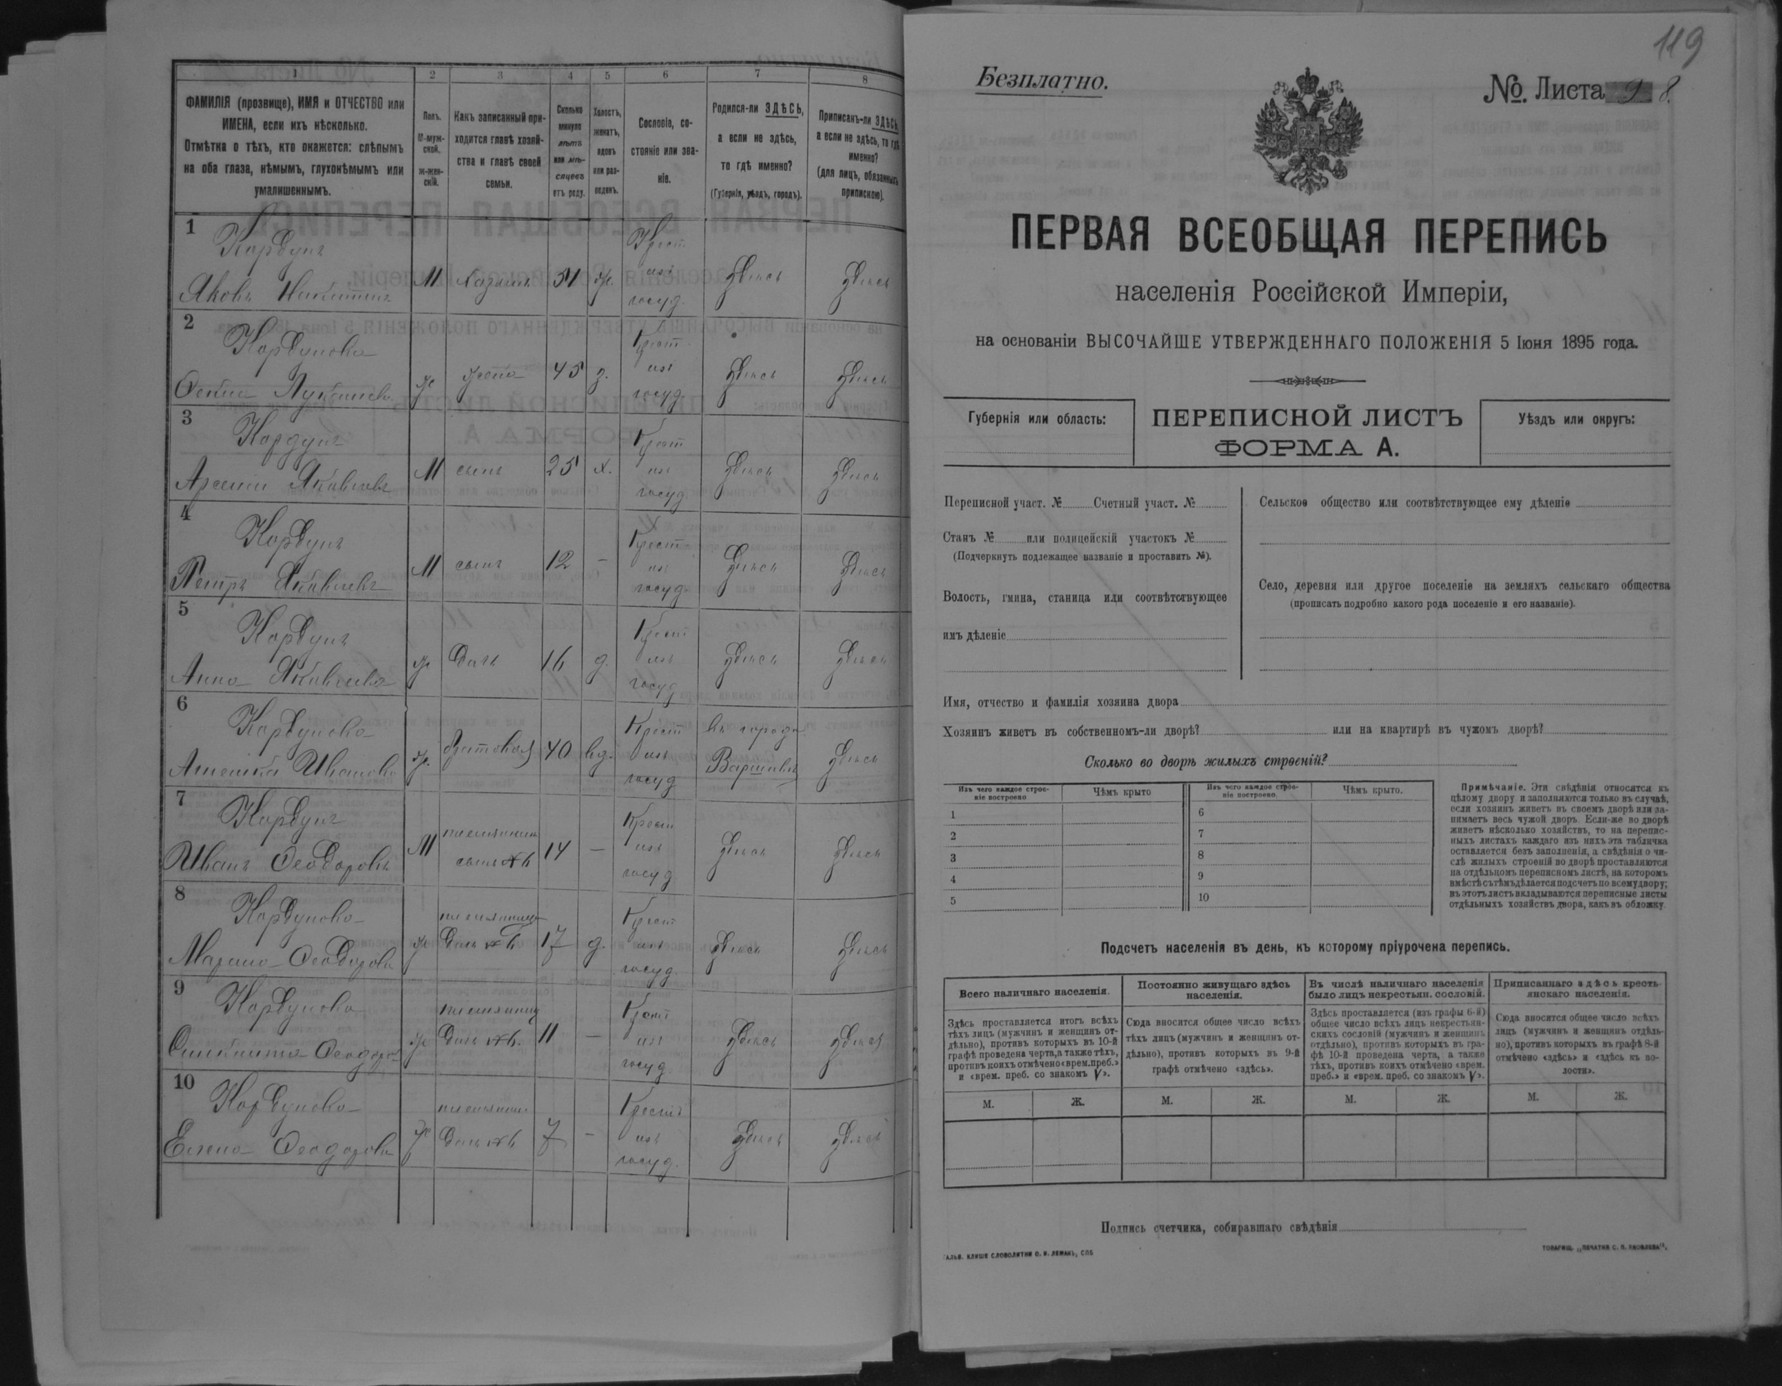 1 2 3 4 5 6 7 8
ФАМИЛІЯ (прозвище), ИМЯ и ОТЧЕСТВО или
ИМЕНА, если ихъ нѣсколько.
Отмѣтка о тѣхъ, кто окажется: слѣпымъ
на оба глаза, нѣмымъ, глухонѣмымъ или
умалишеннымъ.
Полъ.
М-муж-
ской.
ж-жен-
скій.
Какъ записанный при-
ходится главѣ хозяй-
ства и главѣ своей
семьи.
Сколько
минуло
лѣтъ
или мѣ-
сяцевъ
отъ роду.
Холостъ,
женатъ,
вдовъ
или раз-
веденъ.
Сословіе, со-
стояніе или зва-
ніе.
Родился-ли ЗДѢСЬ,
а если не здѣсь,
то гдѣ именно?
(Губернія, уѣздъ, городъ).
Приписанъ-ли ЗДѢСЬ,
а если не здѣсь, то гдѣ
именно?
(для лицъ, обязанныхъ
припискою).
1
Кордунъ
Яковъ
М хозяинъ 54 ж.
Крест.
изъ
госуд.
здѣсь здѣсь
2
Кордунова
ж жена 45 з.
Крест.
изъ
госуд.
здѣсь здѣсь
3
Кордунъ
Арсеній Яковлевъ
М сынъ 25 х.
Крест
изъ
госуд.
здѣсь здѣсь
4
Кордунъ
Петръ Яковлевъ
М сынъ 12 –
Крест
изъ
госуд.
здѣсь здѣсь
5
Кордунъ
Анна Яковлева
ж дочь 16 д.
Крест
изъ
госуд.
здѣсь здѣсь
6
Кордунова
Ивановна
ж. 40 вд.
Крест
изъ
госуд
въ городѣ
Варшавѣ
здѣсь
7
Кордунъ
Иванъ Ѳеодоровъ
М
племянникъ
сынъ №6
14 –
Крест
изъ
госуд
здѣсь здѣсь
8
Кордунова
Марина Ѳеодорова
ж
племянница
дочь №6
17 д.
Крест
изъ
госуд.
здѣсь здѣсь
9
Кордунова
ж
племянница
дочь №6.
11 –
Крест
изъ
госуд
здѣсь здѣсь
10
Кордунова
Елена Ѳеодорова
ж
дочь №6
7 –
Крест
изъ
госуд.
здѣсь здѣсь
119
Безплатно.
№. Листа 9 8.
ПЕРВАЯ ВСЕОБЩАЯ ПЕРЕПИСЬ
населенія Россійской Имперіи,
на основаніи ВЫСОЧАЙШЕ УТВЕРЖДЕННАГО ПОЛОЖЕНІЯ 5 Іюня 1895 года.
Губернія или область:
ПЕРЕПИСНОЙ ЛИСТЪ
ФОРМА А.
Уѣздъ или округъ:
Переписной участ. № Счетный участ. №
Станъ № или полицейскій участокъ №
(Подчеркнуть подлежащее названіе и проставить №).
Волость, гмина, станица или соотвѣтствующее
имъ дѣленіе
Сельское общество или соотвѣтствующее ему дѣленіе
Село, деревня или другое поселеніе на земляхъ сельскаго общества
(прописать подробно какого рода поселеніе и его названіе).
Имя, отчество и фамилія хозяина двора
Хозяинъ живетъ въ собственномъ-ли дворѣ? или на квартирѣ въ чужомъ дворѣ?
Сколько во дворѣ жилыхъ строеній?
Изъ чего каждое строе-
ніе построено
Чѣмъ крыто
Изъ чего каждое строе-
ніе построено.
Чѣмъ крыто.
1 6
2 7
3 8
4 9
5 10
Примѣчаніе. Эти свѣдѣнія относятся къ
цѣлому двору и заполняются только въ случаѣ,
если хозяинъ живетъ въ своемъ дворѣ или за-
нимаетъ весь чужой дворъ. Если-же во дворѣ
живетъ нѣсколько хозяйствъ, то на перепис-
ныхъ листахъ каждаго изъ нихъ эта табличка
оставляется безъ заполненія, а свѣдѣнія о чи-
слѣ жилыхъ строеній во дворѣ проставляются
на отдѣльномъ переписномъ листѣ, на которомъ
вмѣстѣ съ тѣмъ дѣлается подсчетъ по всему двору;
въ этотъ листъ вкладываются переписные листы
отдѣльныхъ хозяйствъ двора, какъ въ обложку
Подсчетъ населенія въ день, къ которому пріурочена перепись.
Всего наличнаго населенія.
Постоянно живущаго здѣсь
населенія.
Въ числѣ наличнаго населенія
было лицъ некрестьян. сословій.
Приписаннаго здѣсь кресть-
янскаго населенія.
Здѣсь проставляется итогъ всѣхъ
тѣхъ лицъ (мужчинъ и женщинъ от-
дѣльно), противъ которыхъ въ 10-й
графѣ проведена черта, а также тѣхъ,
противъ коихъ отмѣчено «врем. преб.»
и «врем. преб. со знакомъ V».
Сюда вносится общее число всѣхъ
тѣхъ лицъ (мужчинъ и женщинъ от-
дѣльно), противъ которыхъ въ 9-й
графѣ отмѣчено «здѣсь».
Здѣсь проставляется (изъ графы 6-й)
общее число всѣхъ лицъ некрестьян-
скихъ сословій (мужчинъ и женщинъ
отдѣльно), противъ которыхъ въ гра-
фѣ 10-й проведена черта, а также
тѣхъ, противъ коихъ отмѣчено «врем.
преб.» и «врем. преб. со знакомъ V».
Сюда вносится общее число всѣхъ
лицъ (мужчинъ и женщинъ отдѣль-
но), противъ которыхъ въ графѣ 8-й
отмѣчено «здѣсь» и «здѣсь въ во-
лости».
М. Ж. М. Ж. М. Ж. М. Ж.
Подпись счетчика, собиравшаго свѣдѣнія
КЛИШЕ СЛОВОЛИТНИ О. И. ЛЕМАНЪ, СПБ
ТОВАРИЩ. „ПЕЧАТНЯ С. П. ЯКОВЛЕВА“.